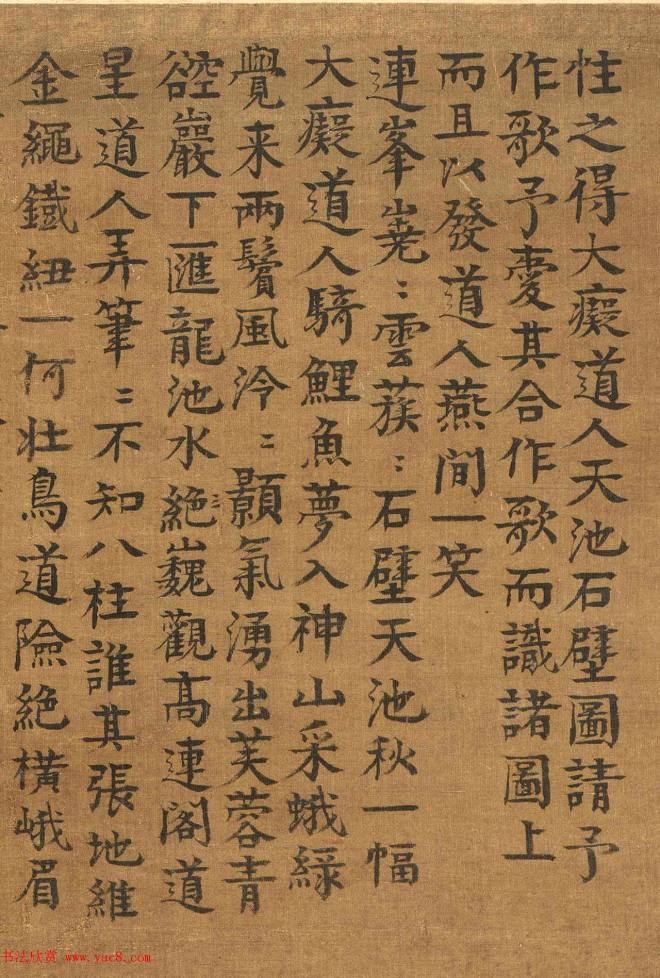 性之得大癡道人天池石壁圖請予
作歌予愛其合作歌而識諸圖上
而且以發道人燕間一笑
連峯嶤〻雲蔟〻石壁天池秋一幅
大癡道人騎鯉魚夢入神山采蛾綠
覺来兩鬢風泠〻顥氣湧出芙蓉青
硿巖下匯龍池水絶巍觀高連閣道
呈道人弄筆〻不知八柱誰其張地維
金繩鐡紐一何壮鳥道險絶橫峨眉
书法欣赏 www.yac8.com